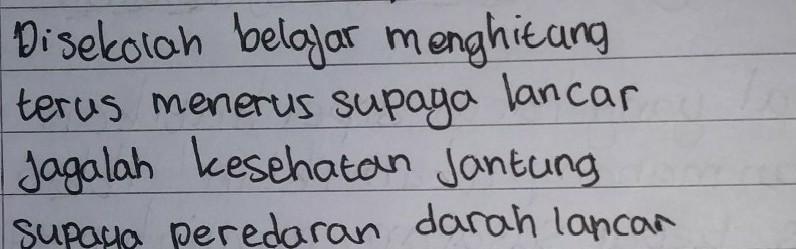 Disekolah belajar menghitung
terus menerus supaya lancar
Jagalah kesehatan Jantung
supaya peredaran darah lancar